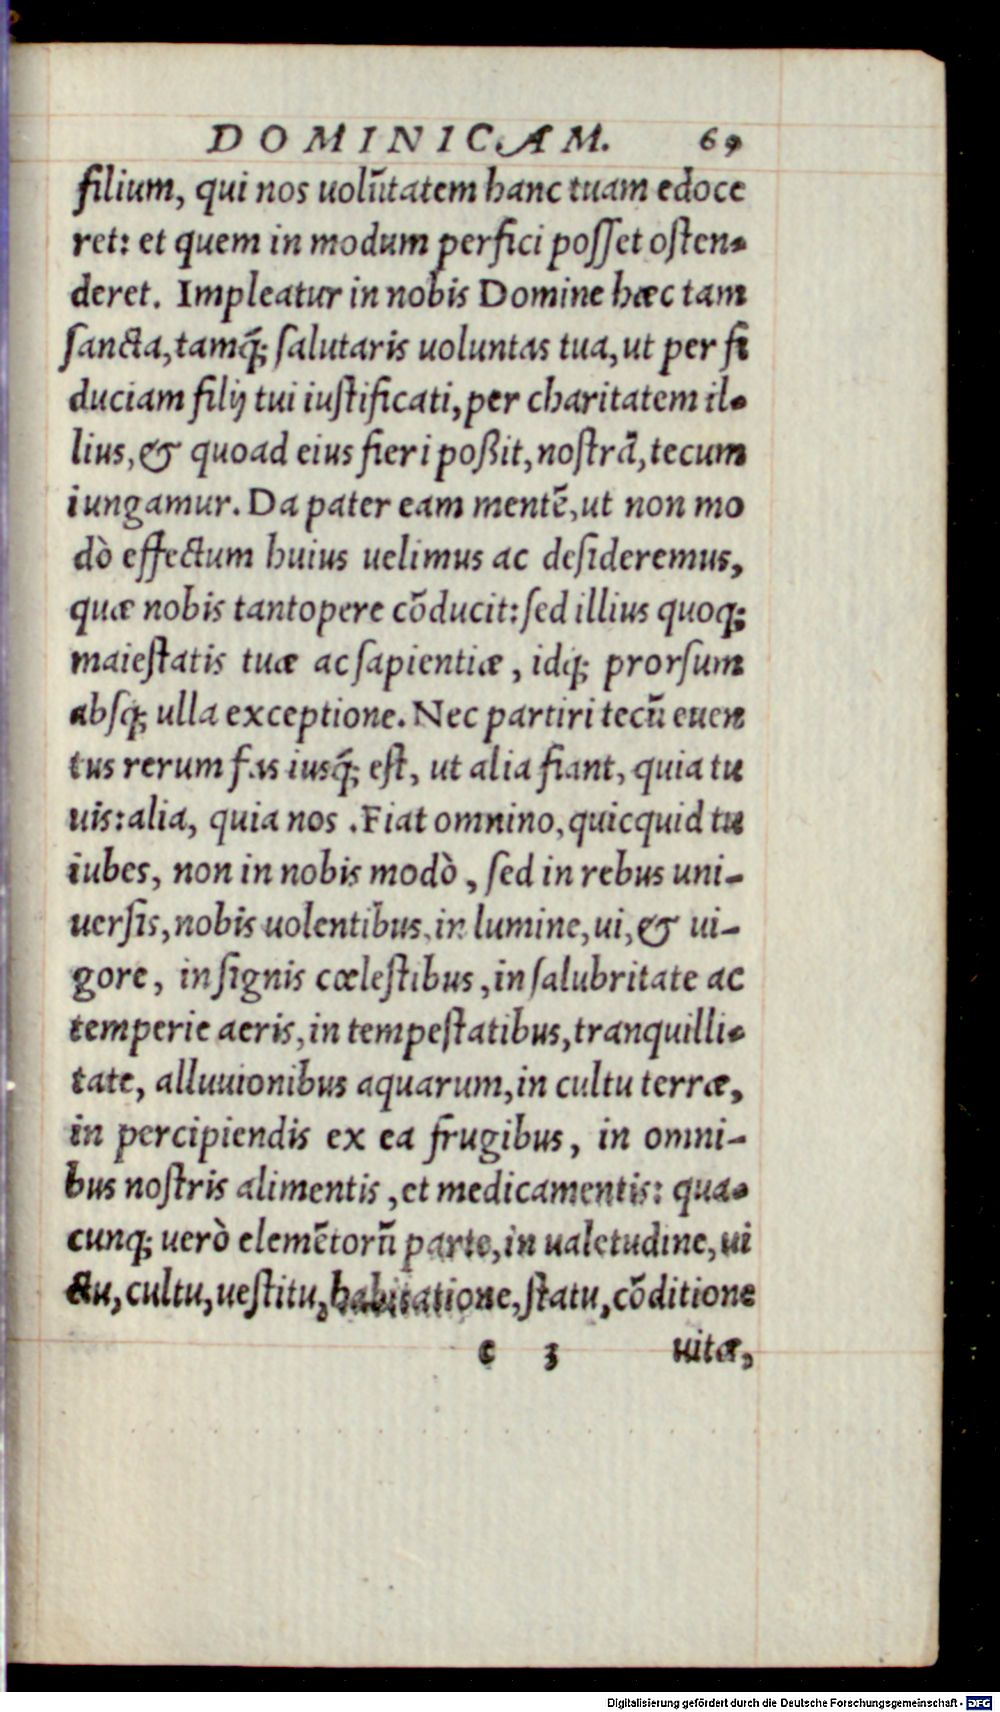 DOMINICAM. 69
filium, qui nos uolūtatem hanc tuam edoce
ret: et quem in modum perfici posset osten-
deret. Impleatur in nobis Domine hæc tam
sancta, tamq́; salutaris uoluntas tua, ut per fi
duciam filij tui iustificati, per charitatem il-
lius, & quoad eius fieri poßit, nostrā, tecum
iungamur. Da pater eam mentē, ut non mo
dò effectum huius uelimus ac desideremus,
quæ nobis tantopere cōducit: sed illius quoq;
maiestatis tuæ ac sapientiæ, idq́; prorsum
absq; ulla exceptione. Nec partiri tecū euen
tus rerum fas iusq́; est, ut alia fiant, quia tu
uis: alia, quia nos. Fiat omnino, quicquid tu
iubes, non in nobis modò, sed in rebus uni-
uersis, nobis uolentibus, in lumine, ui, & ui-
gore, in signis cœlestibus, in salubritate ac
temperie aeris, in tempestatibus, tranquilli-
tate, alluuionibus aquarum, in cultu terræ,
in percipiendis ex ea frugibus, in omni-
bus nostris alimentis, et medicamentis: qua-
cunq; uerò elemētorū parte, in ualetudine, ui
ctu, cultu, uestitu, habitatione, statu, cōditione
c 3 uitæ,
Digitalisierung gefördert durch die Deutsche Forschungsgemeinschaft - DFG